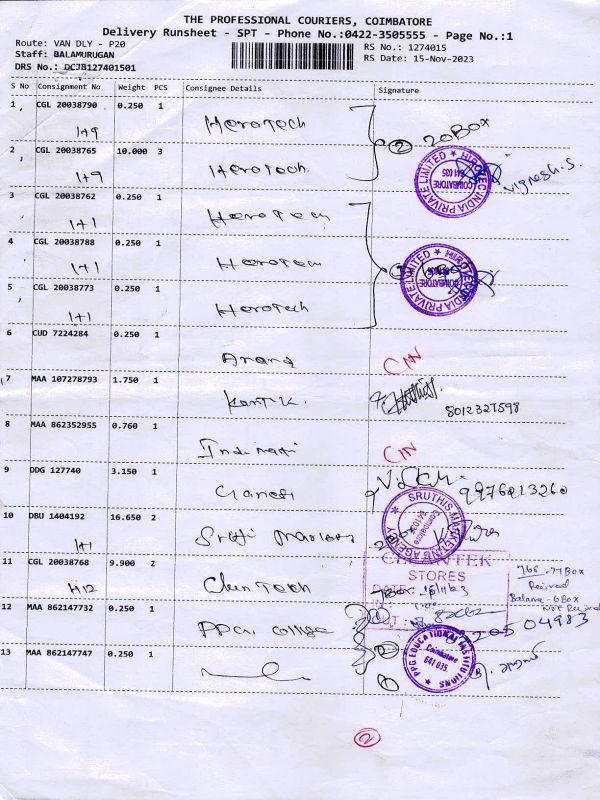 THE PROFESSIONAL COURIERS, COIMBATORE
Delivery Runsheet - SPT - Phone No.:0422-3505555 - Page No.:1
Route: VAN DLY - P20
RS No.: 1274015
Staff: BALAMURUGAN
RS Date: 15-Nov-2023
DRS No.: DCJB127401501
S No Consignment No Weight PCS Consignee Details Signature
1 CGL 20038790 0.250 1
Herotech
1+9
② 20Box
2 CGL 20038765 10.000 3
Herotech
1+9
HIROTEC INDIA PRIVATE LIMITED
COIMBATORE
641 035
Vignesh.S.
3 CGL 20038762 0.250 1
Herotech
1+1
4 CGL 20038788 0.250 1
Herotech
1+1
③ 6Box
HIROTEC INDIA PRIVATE LIMITED
5 CGL 20038773 0.250 1
Herotech
1+1
6 CUD 7224284 0.250 1
Anang
CIN
7 MAA 107278793 1.750 1
Kartik.
8012327598
8 MAA 862352955 0.760 1
CIN
9 DDG 127740 3.150 1
Ganesh
9976213260
SRUTHIS MARKETING AGENCY
10 DBU 1404192 16.650 2
1+1
2Box
11 CGL 20038768 9.900 2
Chentech
H12
STORES
DATE
7Box
15/11/23
7Box
Received
Balance - 6Box
Not Received
12 MAA 862147732 0.250 1
PPG college
205 04983
13 MAA 862147747 0.250 1
PPG EDUCATIONAL INSTITUTIONS
Coimbatore
641 035
②